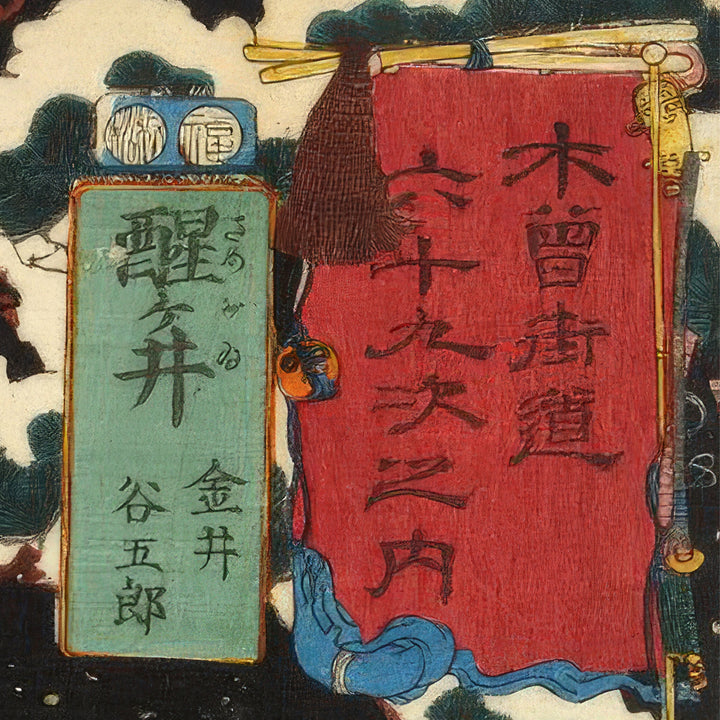 木曽街道
六十九次之内
醒ヶ井
さめがゐ
金井
谷五郎
福